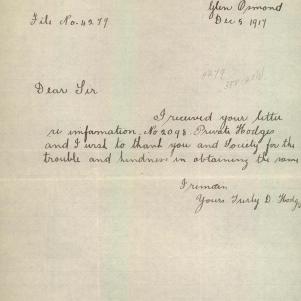 Glen Osmond
File No. 4279
Dec 5 1917
4279
Dear Sir
I received your letter
re imfarmation, No 2098. Private Hodges
and I wish to thank you and Society for the
trouble and kindness in obtaining the same
I remain
Yours Truly D. Hodg